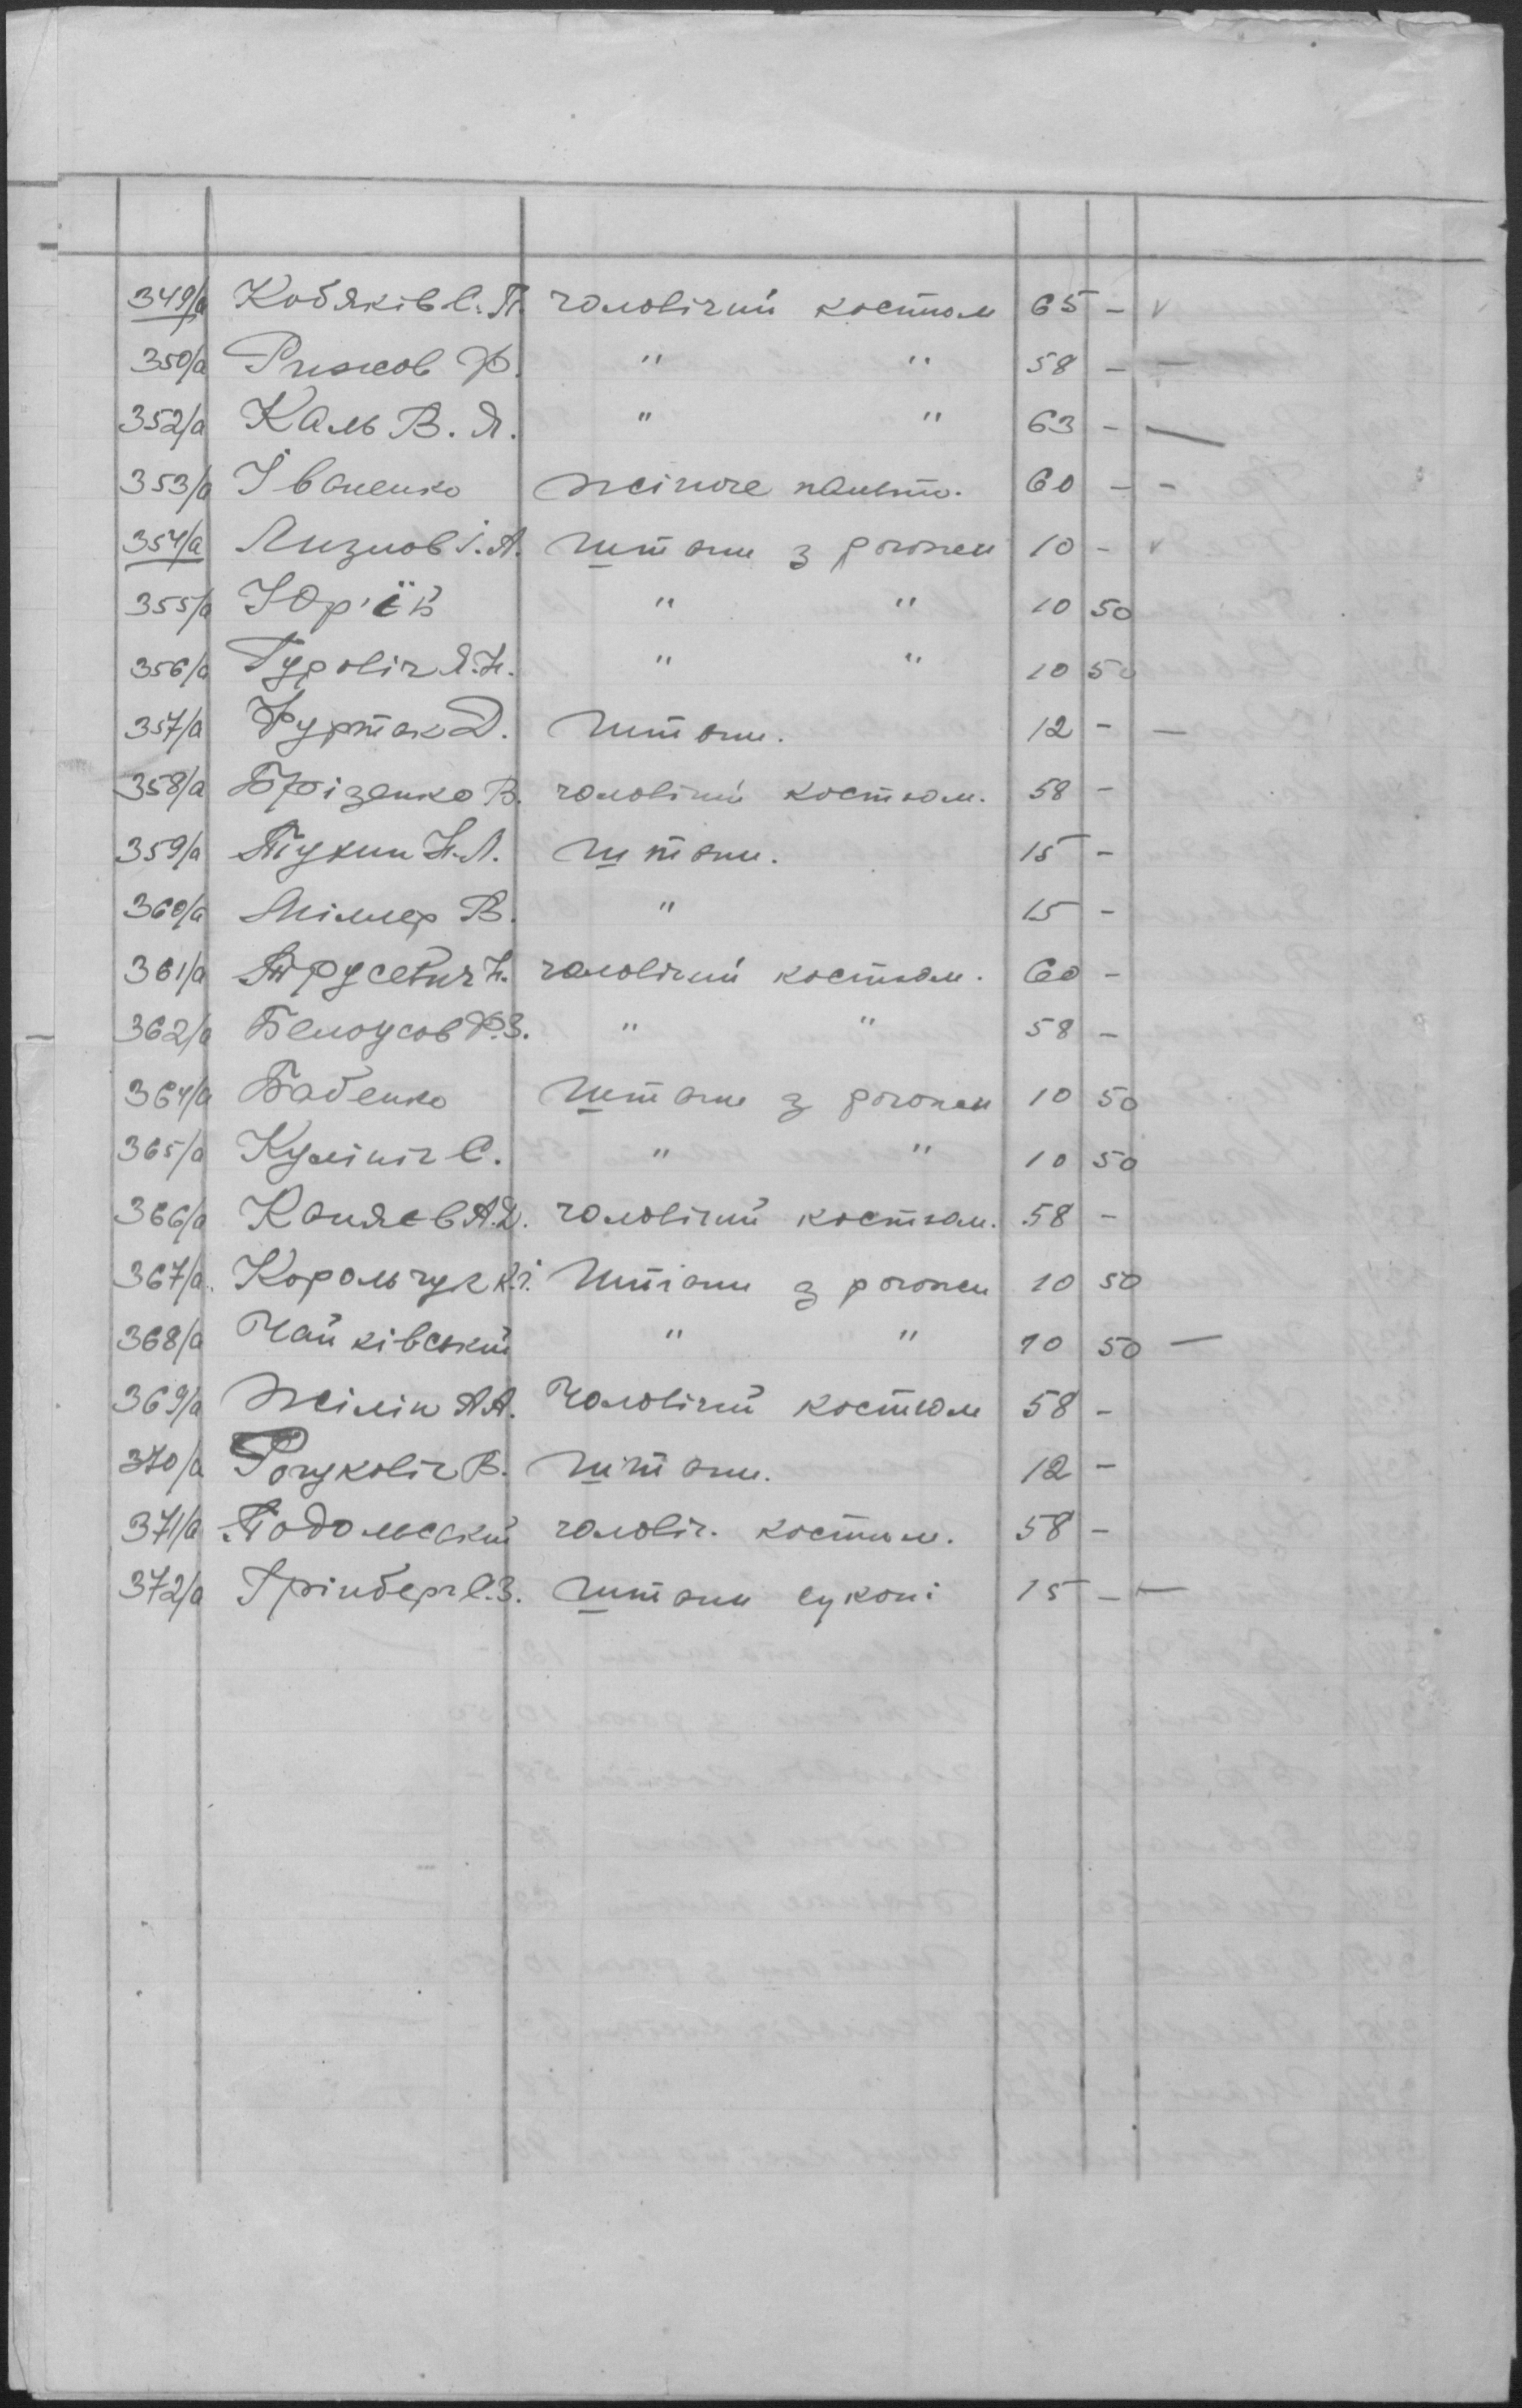 349/а Кобяків С. П. чоловічий костюм 65 - v
350/а Рижков Ф. " " 58 - -
352/а Каль В. Я. " " 63 - -
353/а Іваненко жіноче пальто. 60 - -
354/а Лизнов І. А. штани з рогожи 10 - v
355/а Юр'їв " " 10 50
356/а Гуровіч Я. Н. " " 10 50
357/а Фуртак Д. штани. 12 - -
358/а Брізенко В. чоловічий костюм. 58 -
359/а Пукин Н. Л. штани. 15 -
360/а Міллер В. " 15 -
361/а Трусевич Н. чоловічий костюм. 60 -
362/а Белоусов Ф. З. " " 58 -
364/а Бабенко штани з рогожи 10 50
365/а Кулініч С. " " 10 50
366/а Каняєв А. Д. чоловічий костюм. 58 -
367/а. Корольчук К. І. штани з рогожи 10 50
368/а Чайківський " " 10 50 -
369/а Жілін А. А. Чоловічий костюм 58 -
370/а Рогуковіч В. штани. 12 -
371/а Подольський чоловіч. костюм. 58 -
372/а Грінберг С. З. штани сукони 15 - -